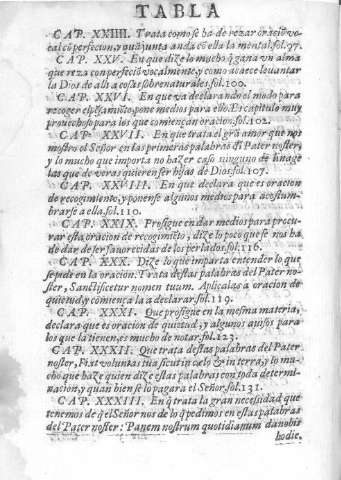 TABLA
CAP. XXIIII. Trata como se ha de rezar oraciō vo
cal cō perfecion, y quā junta anda cō ella la mental. fol. 97.
CAP. XXV. En que dize lo mucho q̄ gana vn alma
que reza con perfeciō vocalmente, y como acaece leuantar
la Dios de alli a cosas sobrenaturales. fol. 100.
CAP. XXVI. En que va declarando el modo para
recoger el pēsamiēto, pone medios para ello. Es capitulo muy
prouechoso para los que comiençan oracion. fol. 102.
CAP. XXVII. En que trata el grā amor que nos
mostro el Señor en las primeras palabras dl Pater noster,
y lo mucho que importa no hazer caso ninguno de linage
las que de veras quieren ser hijas de Dios. fol. 107.
CAP. XXVIII. En que declara que es oracion
de recogimiento, y ponense algunos medios para acostum-
brarse a ella. fol. 110.
CAP. XXIX. Prosigue en dar medios para procu-
rar esta oracion de recogimiēto, dize lo poco que se nos ha
de dar de ser fauorecidas de los perlados. fol. 116.
CAP. XXX. Dize lo que importa entender lo que
se pide en la oracion. Trata destas palabras del Pater no-
ster, Sanctificetur nomen tuum. Aplicalas a oracion de
quietud, y comiença la a declarar. fol. 119.
CAP. XXXI. Que prosigue en la mesma materia,
declara que es oracion de quietud, y algunos auisos para
los que la tienen, es mucho de notar. fol. 123.
CAP. XXXII. Que trata destas palabras del Pater
noster, Fiat voluntas tua sicut in cælo & in terra, y lo mu-
cho que haze quien dize estas palabras con toda determi-
nacion, y quan bien se lo pagara el Señor. fol. 131.
CAP. XXXIII. En q̄ trata la gran necesidad que
tenemos de q̄ el Señor nos de lo q̄ pedimos en estas palabras
del Pater noster: Panem nostrum quotidianum da nobis
hodie.